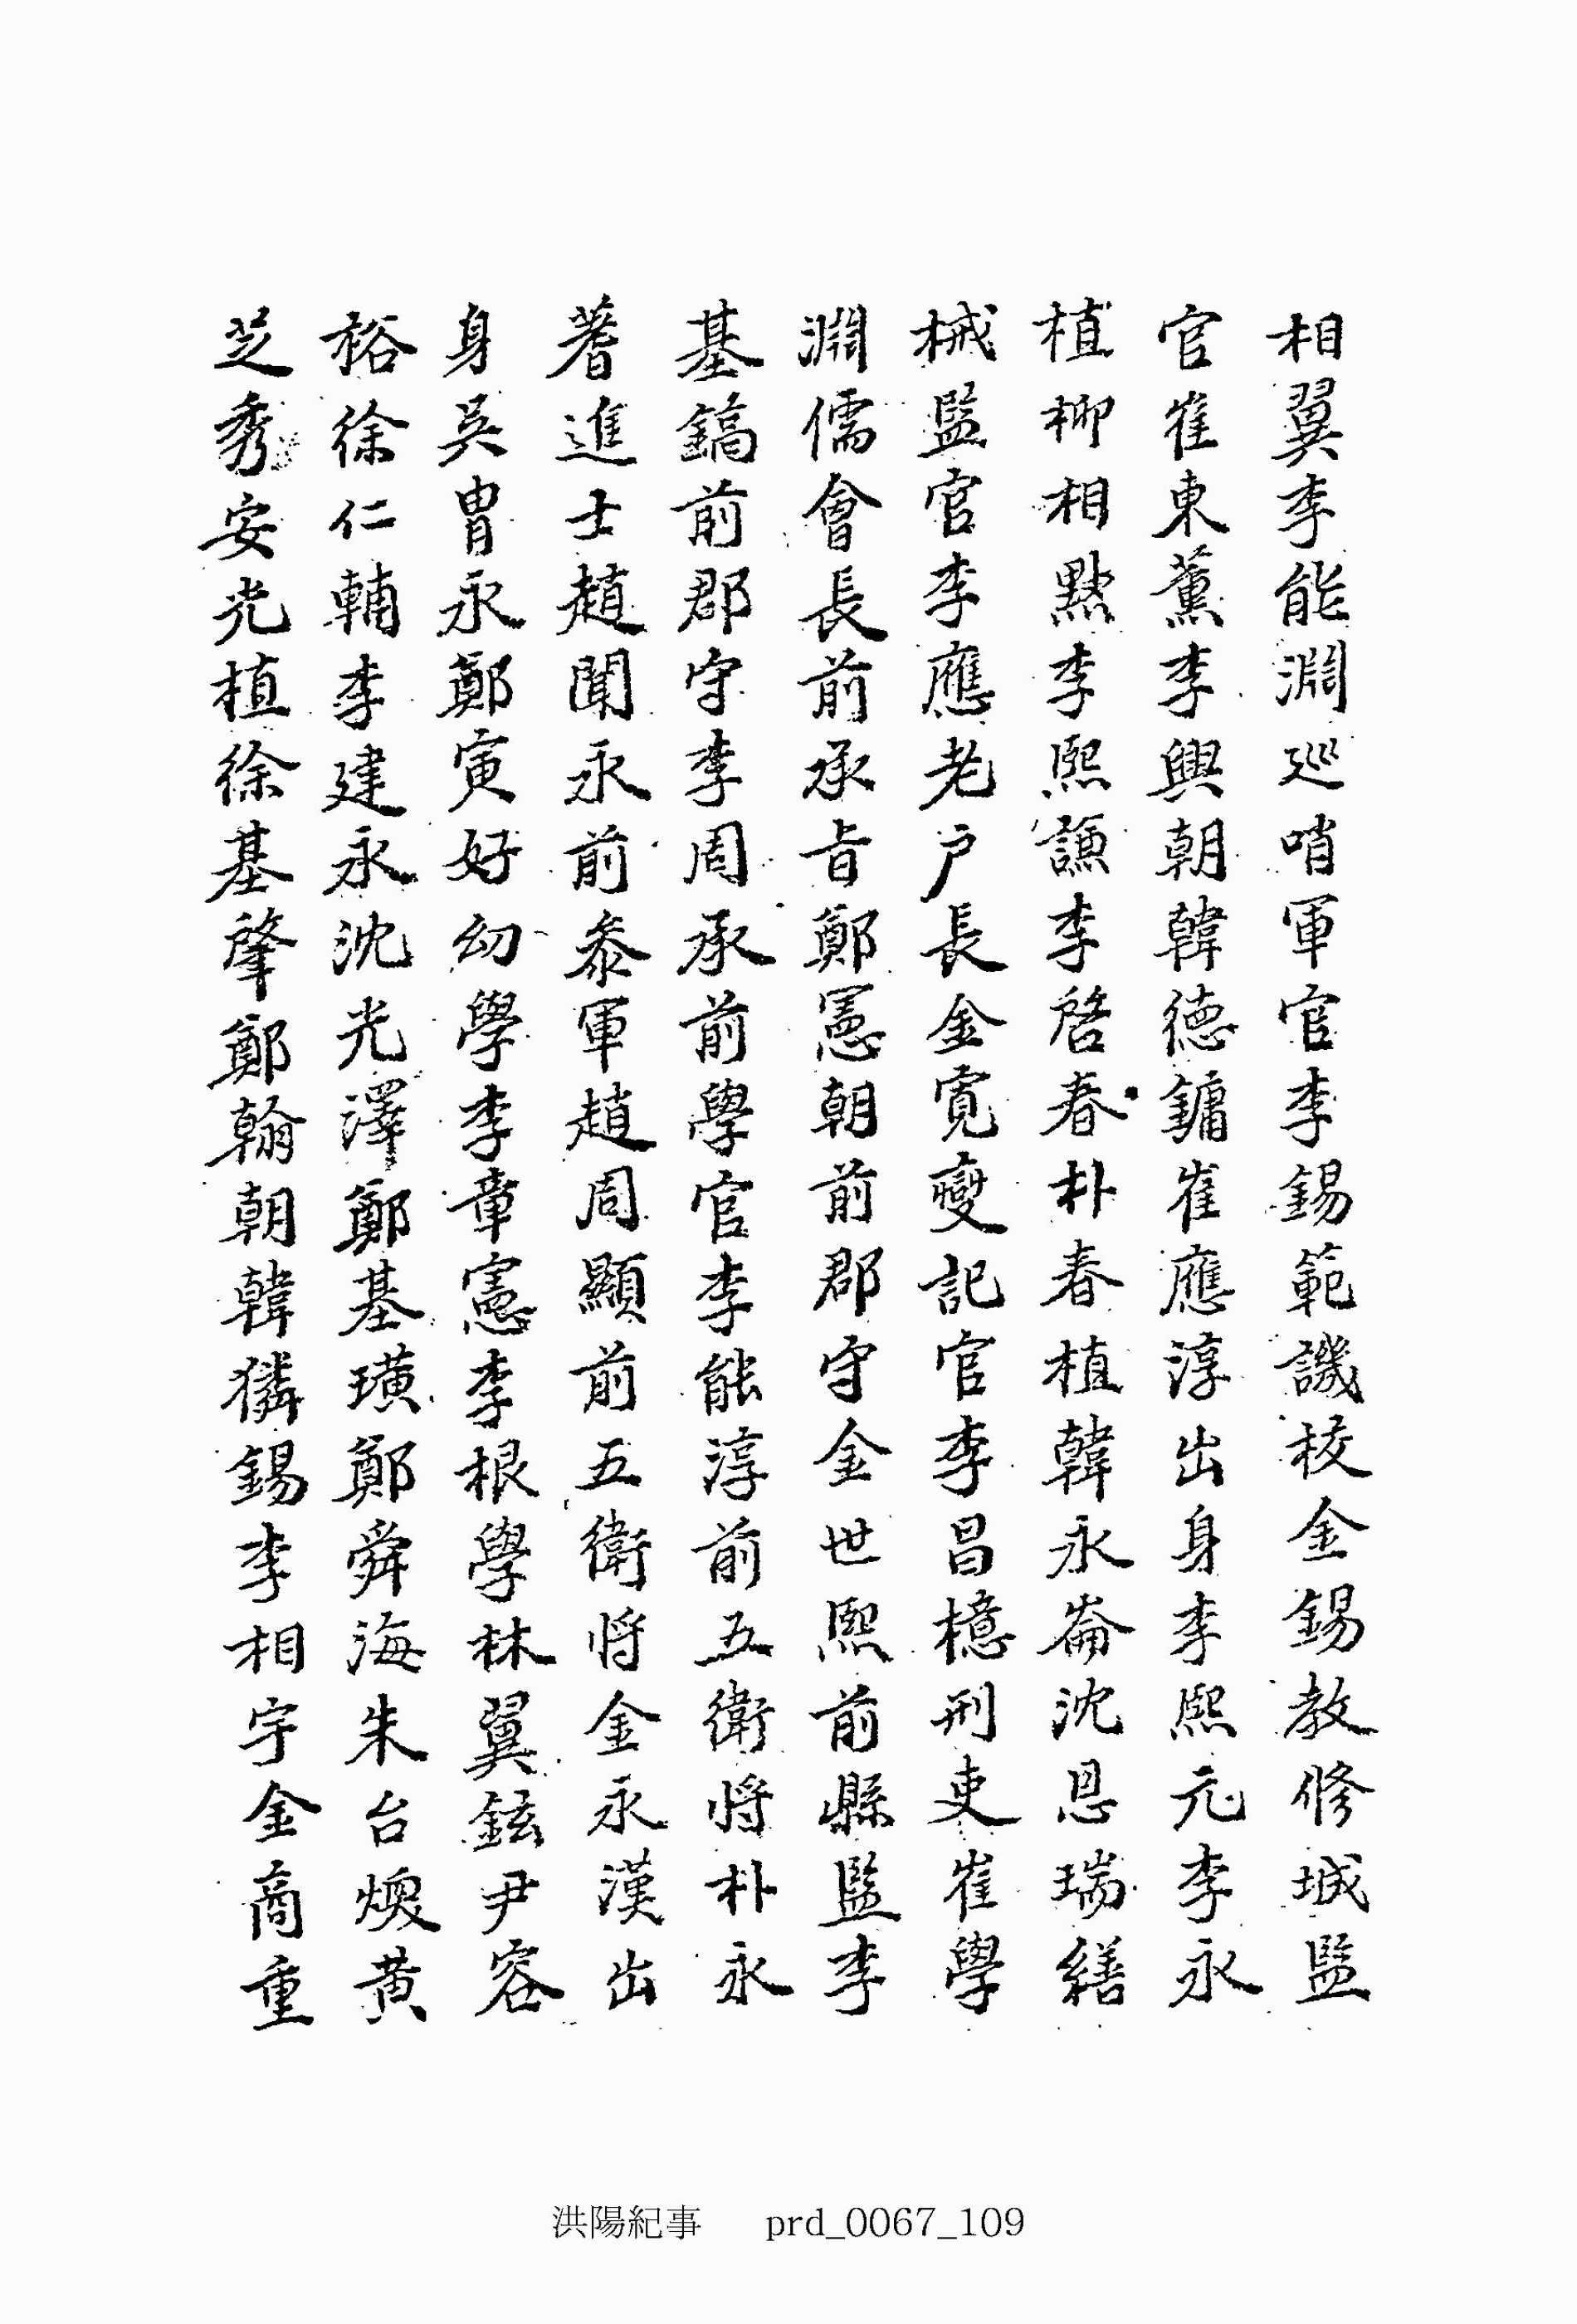 相翼李能淵巡哨軍官李錫範譏校金錫敎修城監
官崔東薰李興朝韓德鏞崔應淳出身李熙元李永
植柳相黙李熙謙李啓春朴春植韓永崙沈恩瑞繕
械監官李應老戶長金寬燮記官李昌檍刑吏崔學
淵儒會長前承旨鄭憲朝前郡守金世熙前縣監李
基鎬前郡守李周承前學官李能淳前五衛将朴永
蓍進士趙聞永前叅軍趙周顯前五衛将金永漢出
身吳胄永鄭寅好幼學李章憲李根學林翼鉉尹容
裕徐仁輔李建永沈光澤鄭基璜鄭舜海朱台煥黃
芝秀安光植徐基肇鄭翰朝韓獜錫李相宇金商重
洪陽紀事 prd_0067_109